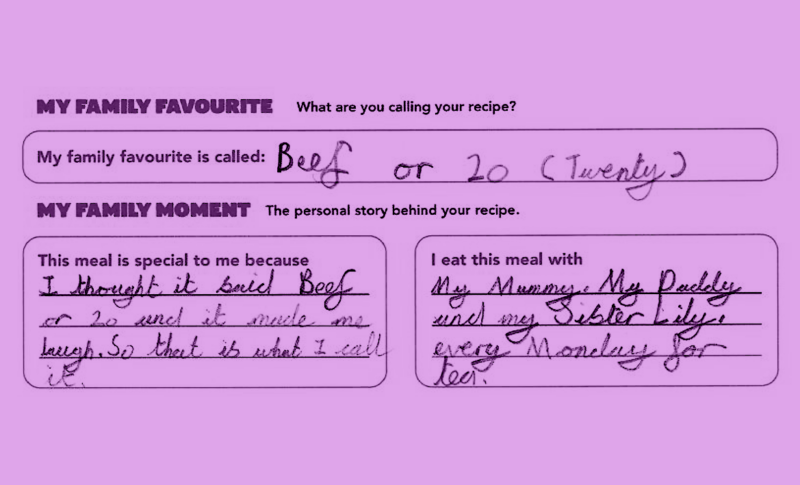 MY FAMILY FAVOURITE What are you calling your recipe?
My family favourite is called: Beef or 20 (Twenty)
MY FAMILY MOMENT The personal story behind your recipe.
This meal is special to me because
I thought it said Beef
or 20 and it made me
laugh. So that is what I call
it.
I eat this meal with
My Mummy. My Daddy
and my Sister Lily.
every Monday for
tea.